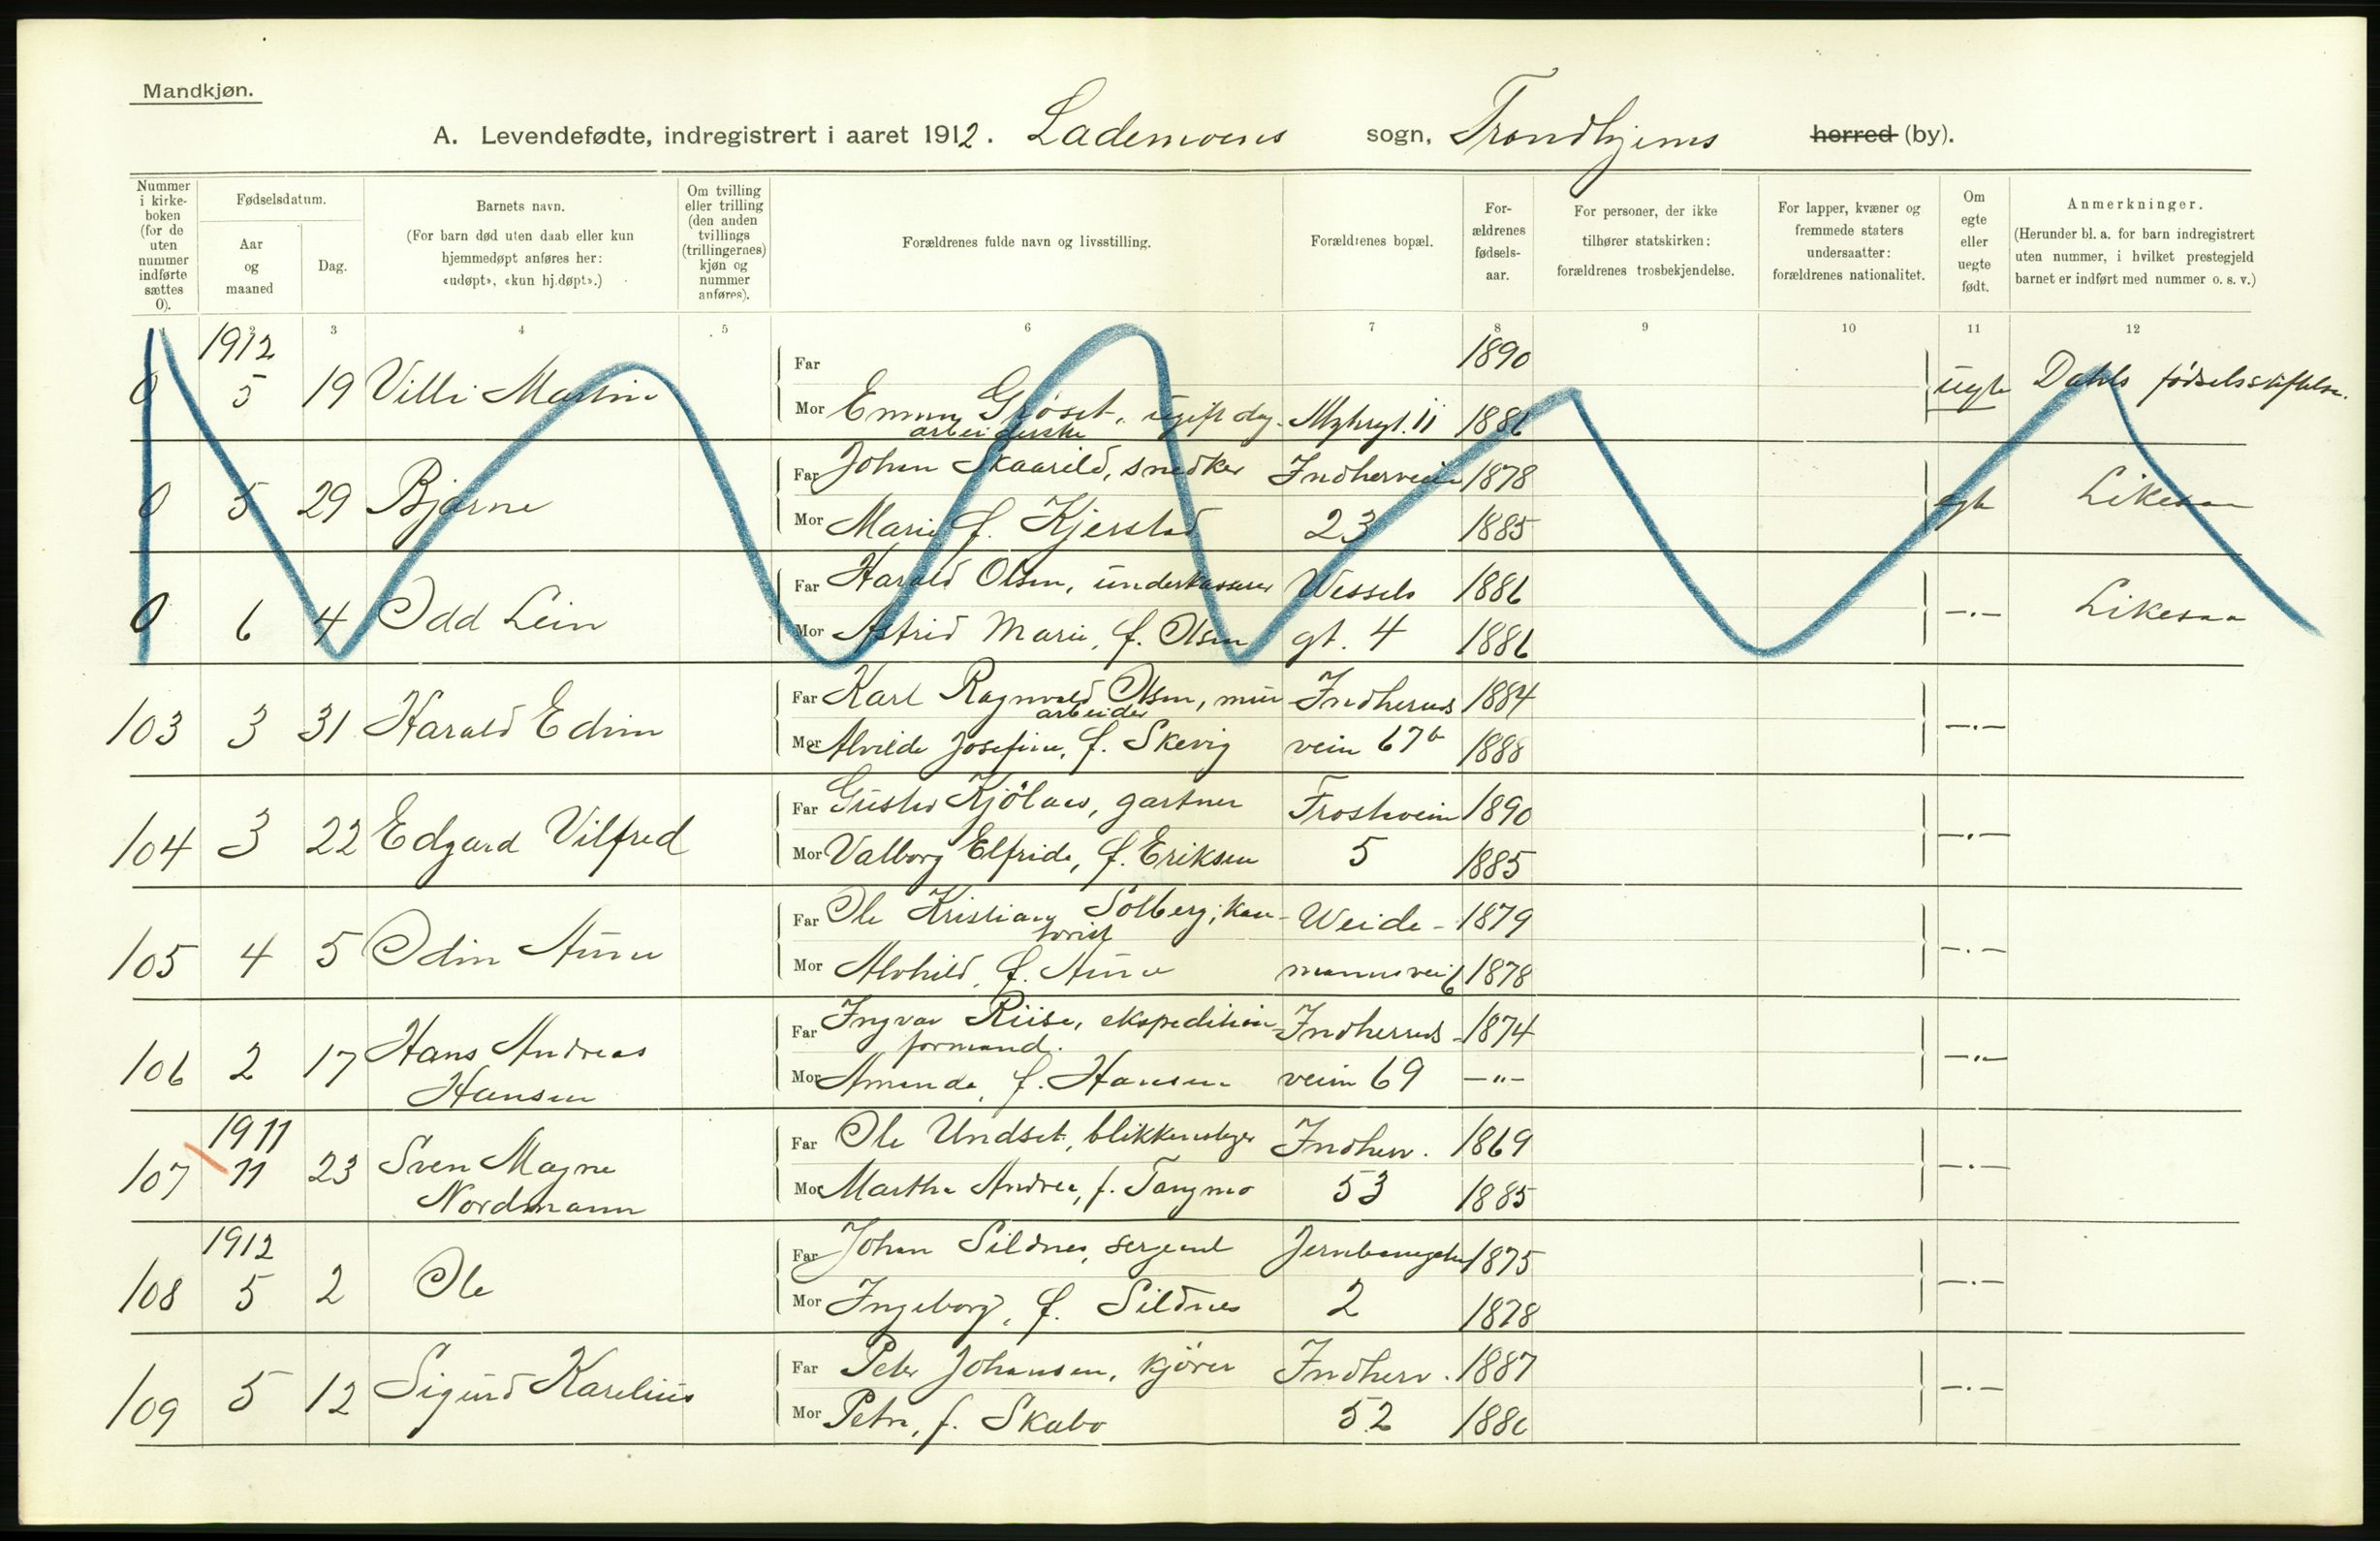 Mandkjøn.
A. Levendefødte, indregistrert i aaret 1912. Lademoens sogn, Trondhjems herred (by).
Nummer i kirke- boken (for de uten nummer indførte sættes 0).
Fødselsdatum.
Aar og maaned
Dag.
Barnets navn.
(For barn død uten daab eller kun hjemmedøpt anføres her: «udøpt», «kun hj.døpt».)
Om tvilling eller trilling (den anden tvillings (trillingernes) kjøn og nummer anføres).
Forældrenes fulde navn og livsstilling.
Forældrenes bopæl.
For- ældrenes fødsels- aar.
For personer, der ikke tilhører statskirken: forældrenes trosbekjendelse.
For lapper, kvæner og fremmede staters undersaatter: forældrenes nationalitet.
Om egte eller uegte født.
Anmerkninger.
(Herunder bl. a. for barn indregistrert uten nummer, i hvilket prestegjeld barnet er indført med nummer o. s. v.)
3 4 5 6 7 8 9 10 11 12
1912 Far 1890
0 5 19 Villi Mor Grøset, ugift 11 uegte Dahls fødselsstiftelse.
arbeiderske
Far Johan Skaarild, snedker Indherveien 1878
0 5 29 Bjarne egte Likesaa
Mor Marie f. Kjerstad 23 1885
Far Harald Olsen, underkasserer Wessels 1886
0 6 4 Odd Lein —.— Likesaa
Mor Astrid Marie, f. Olsen gt. 4 1886
Far Karl Ragnvald Olsen, mur Indhereds 1884
arbeider
103 3 31 Harald Edvin —.—
Mor Alvilde Josefine, f. Skevig veien 67b 1888
Far Gustav gartner Frostavein 1890
104 3 22 Edgard Vilfred —.—
Mor Valborg Elfrida, f. Eriksen 5 1885
Far Ole Kristian Solberg, kon- Weide- 1879
torist
105 4 5 Odin Aune —.—
Mor Alvhild, f. Aune mannsvei 6 1878
Far Ingvar Riise, ekspedition- Indherreds- 1874
formand.
106 2 17 Hans Andreas —.—
Hansen
Mor Amanda, f. Hansen veien 69 —"—
1911
Far Ole Undset, blikkenslager Indherv. 1869
107 11 23 Sven Magne —.—
Nordmann
Mor Martha Andrea, f. Tangmo 53 1885
1912
Far Johan Sildnes, sergeant Jernbanegaten 1875
108 5 2 Ole —.—
Mor Ingeborg, f. Sildnes 2 1878
Far Peder Johansen, kjører Indherv. 1887
109 5 12 Sigurd Karelius —.—
Mor Petra, f. Skabo 52